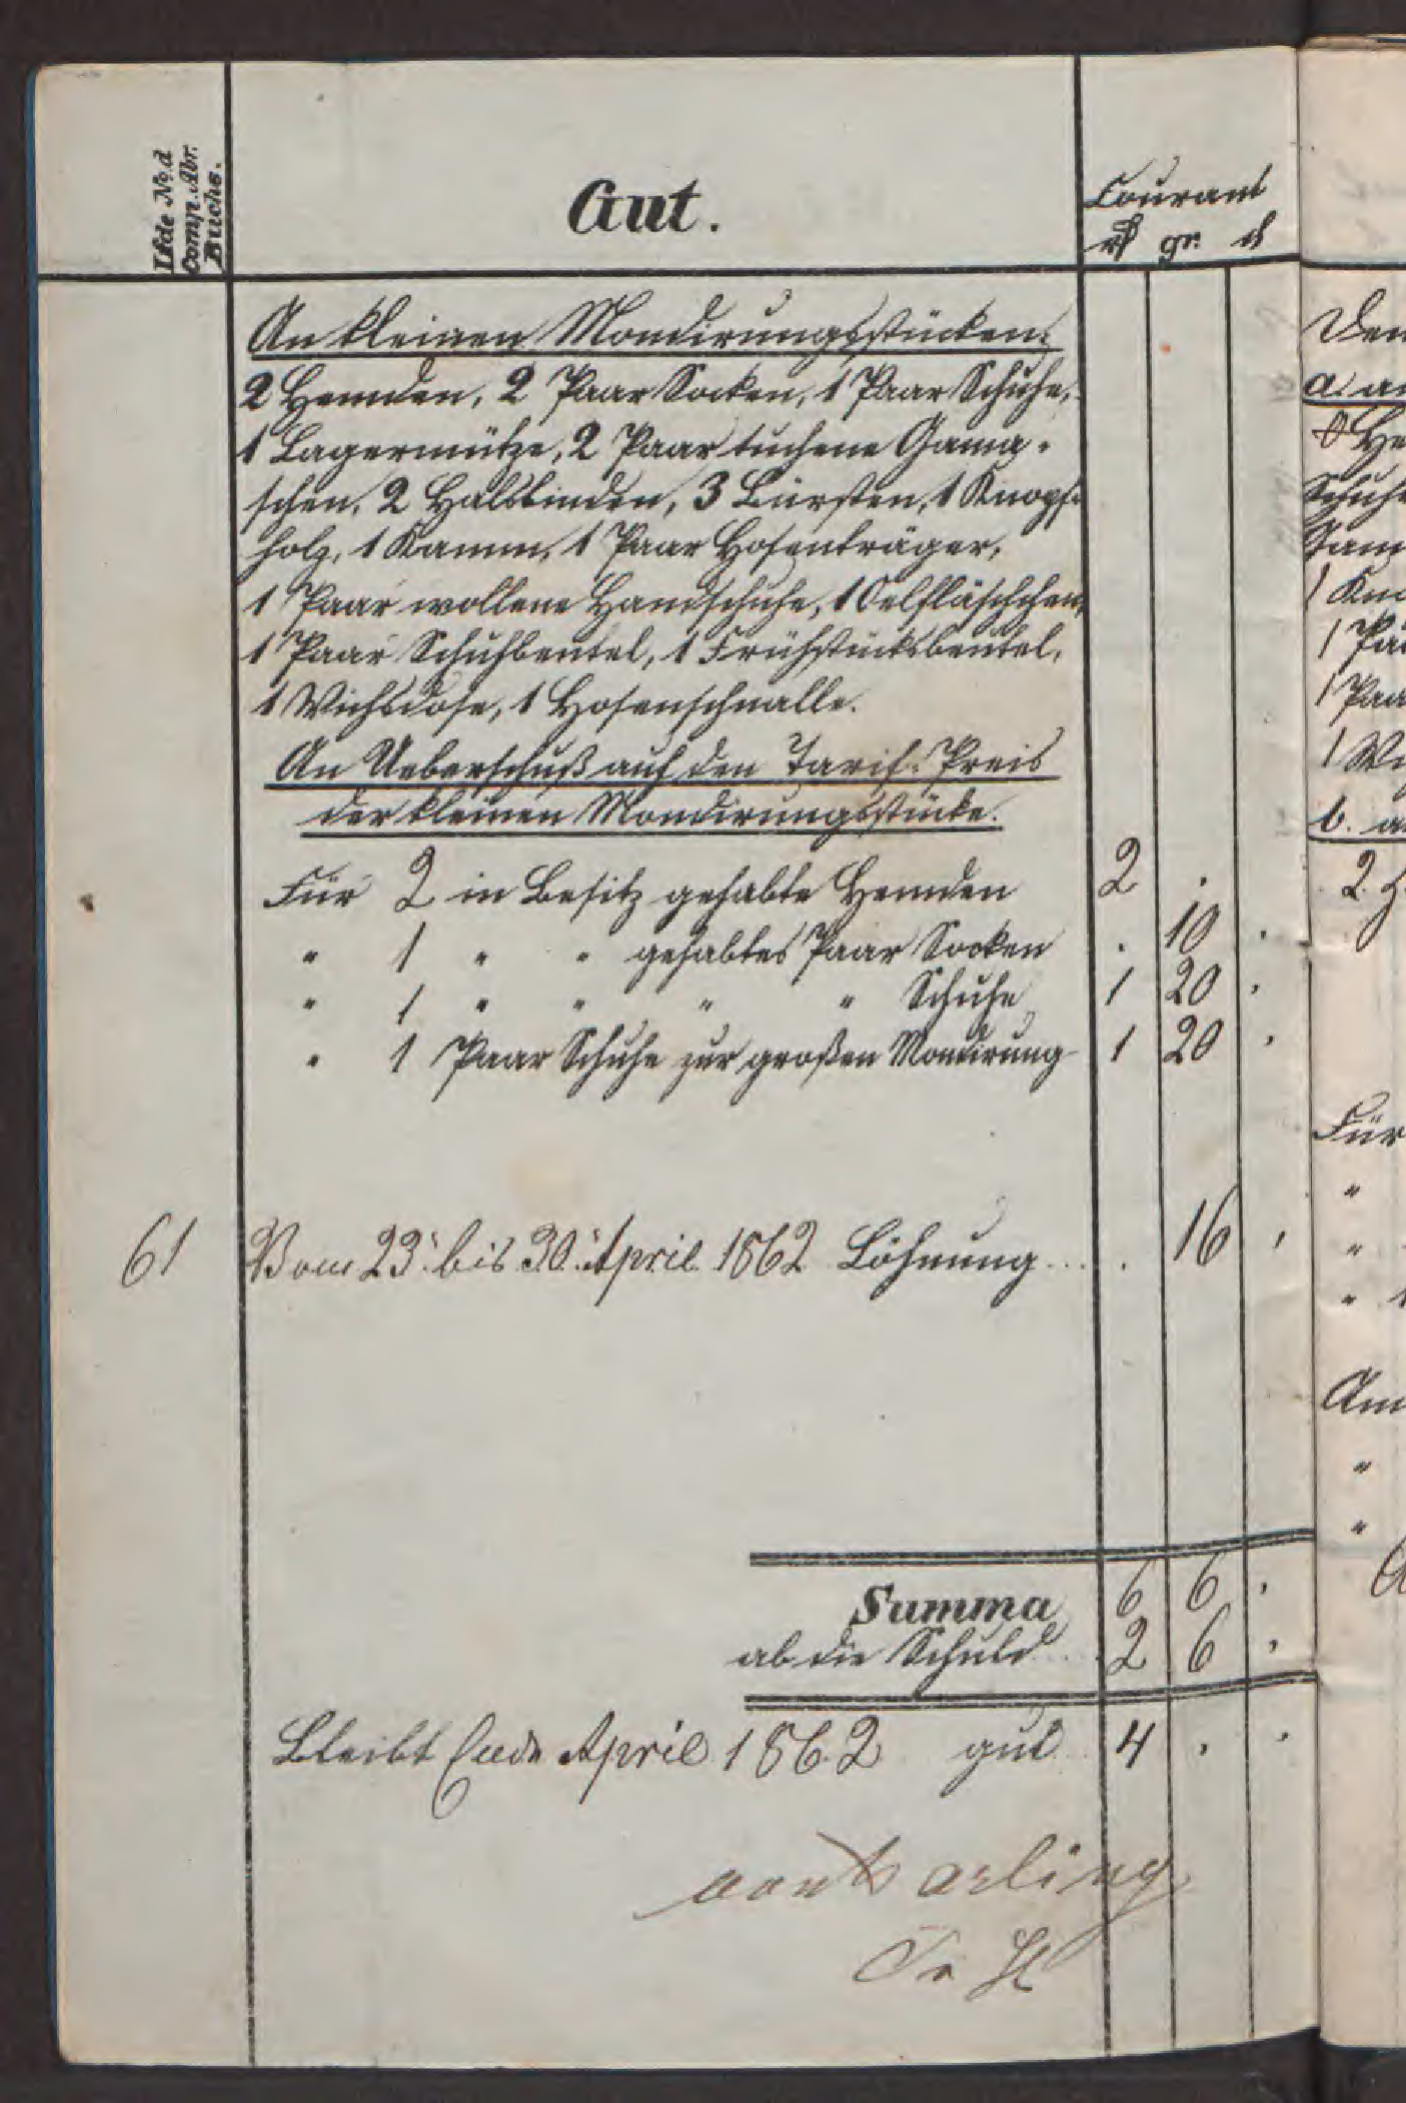 Lfde No. d
Comp. Abr.
Buchs.
Gut.
Courant
rℓ gr. d
An kleinen Mondirungsstücken:
2 Hemden, 2 Paar Socken, 1 Paar Schuhe,
1 Lagermütze, 2 Paar tuchene Gama-
schen, 2 Halsbinden, 3 Bürsten, 1 Knopf-
holz, 1 Kamm, 1 Paar Hosenträger,
1 Paar wollene Handschuhe, 1 Oelfläschchen,
1 Paar Schuhbeutel, 1 Frühstücksbeutel,
1 Wichsdose, 1 Hosenschnalle.
An Ueberschuß auf den Tarif-Preis
der kleinen Mondirungsstücke.
Für 2 in Besitz gehabte Hemden 2 .
" 1 " " gehabtes Paar Socken . 10 .
" 1 " " " " Schuhe 1 20 .
" 1 Paar Schuhe zur großen Mondirung 1 20 .
61 Vom 23. bis 30. April 1862 Löhnung . . . . 16 .
Summa 6 6 .
ab die Schuld . . 2 6 .
Bleibt Ende April 1862 gut 4 . .
Den
a. an
He
Schuhe
1 Kno
1 Paa
1 Paar
1 Wi
b. a
2 H
Für
"
"
" 1
Am
"
"